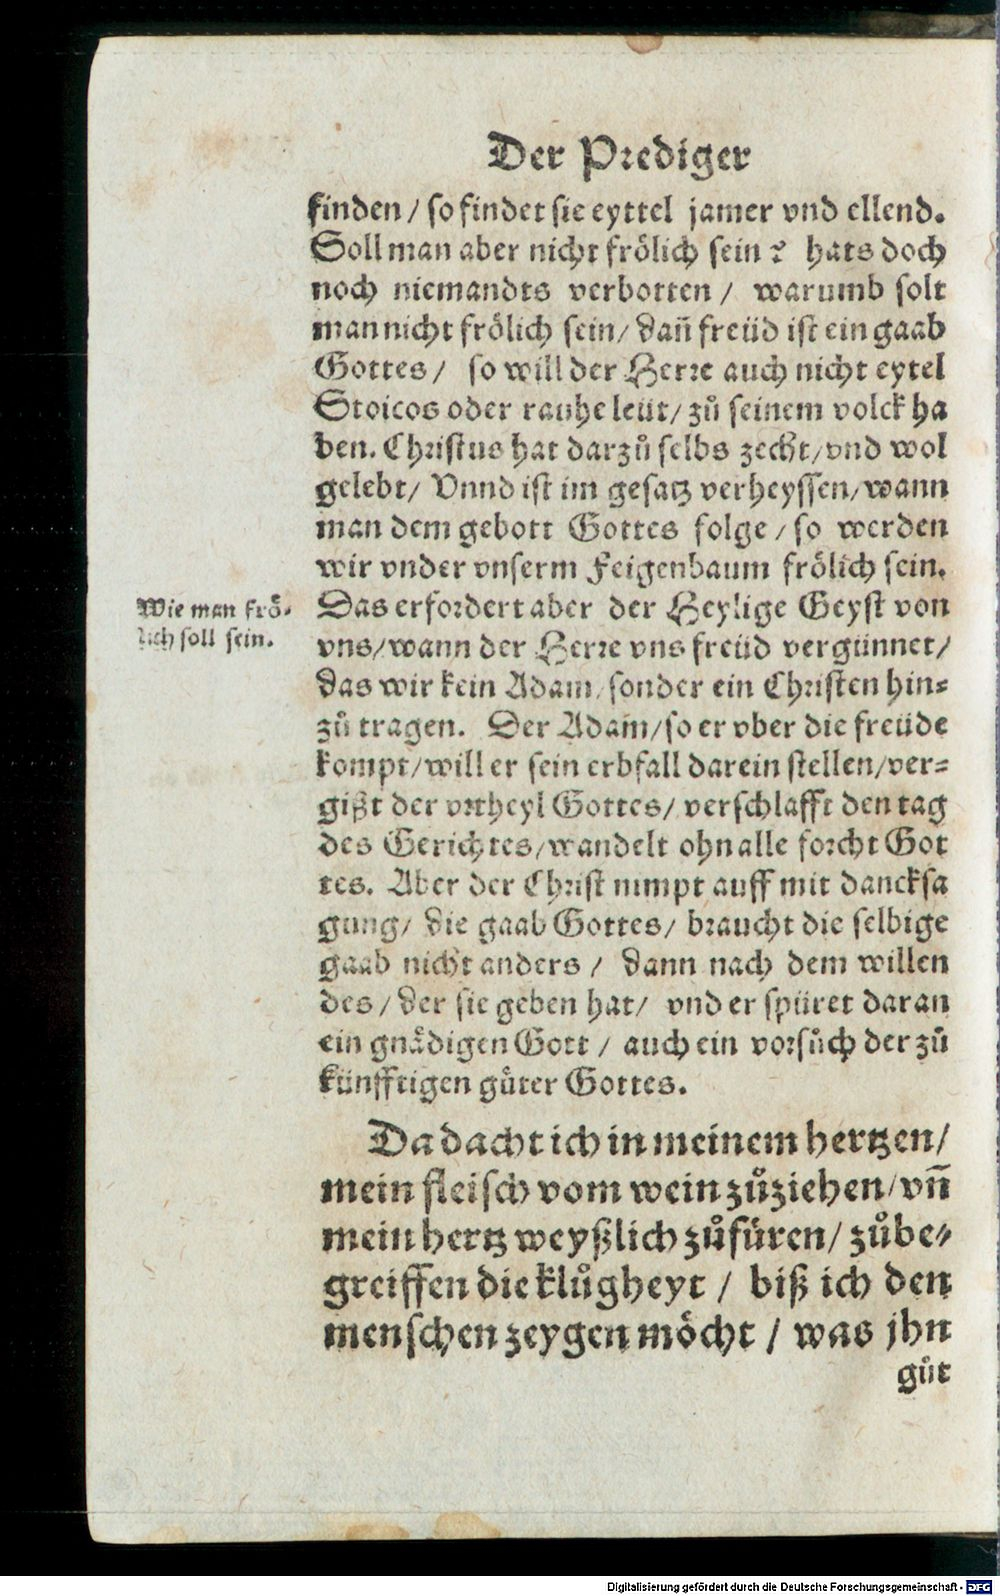 Der Prediger
finden / so findet sie eyttel jamer vnd ellend.
Soll man aber nicht frölich sein? hats doch
noch niemandts verbotten / warumb solt
man nicht frölich sein / dañ freüd ist ein gaab
Gottes / so will der Herre auch nicht eytel
Stoicos oder rauhe leüt / zů seinem volck ha
ben. Christus hat darzů selbs zecht / vnd wol
gelebt / Vnnd ist im gesatz verheyssen / wann
man dem gebott Gottes folge / so werden
wir vnder vnserm Feigenbaum frölich sein.
Wie man frö-
lich soll sein.
Das erfordert aber der Heylige Geyst von
vns / wann der Herre vns freüd vergünnet /
das wir kein Adam / sonder ein Christen hin-
zů tragen. Der Adam / so er vber die freüde
kompt / will er sein erbfall darein stellen / ver-
gißt der vrtheyl Gottes / verschlafft den tag
des Gerichtes / wandelt ohn alle forcht Got
tes. Aber der Christ nimpt auff mit dancksa
gung / die gaab Gottes / braucht die selbige
gaab nicht anders / dann nach dem willen
des / der sie geben hat / vnd er spüret daran
ein gnädigen Gott / auch ein vorsůch der zů
künfftigen güter Gottes.
Da dacht ich in meinem hertzen /
mein fleisch vom wein zůziehen / vñ
mein hertz weyßlich zůfüren / zůbe-
greiffen die klůgheyt / biß ich den
menschen zeygen möcht / was jhn
gůt
Digitalisierung gefördert durch die Deutsche Forschungsgemeinschaft - DFG